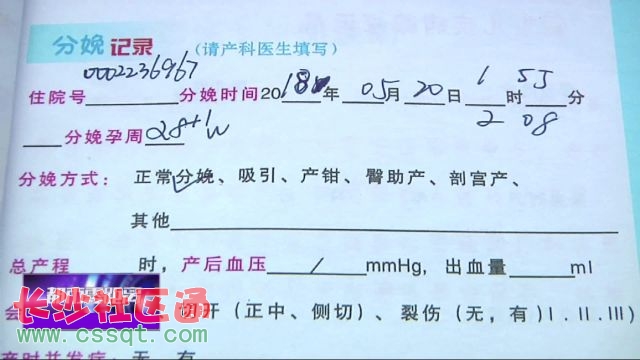 分娩记录 (请产科医生填写)
住院号0002236967 分娩时间2018年05月20日1时55分
2 08
分娩孕周28+1W
分娩方式：正常分娩、吸引、产钳、臀助产、剖宫产、
其他
总产程 时，产后血压 / mmHg，出血量 ml
会 切开（正中、侧切）、裂伤（无，有）I．II．III）
长沙社区通
www.cssqt.com
产时并发症：无 有